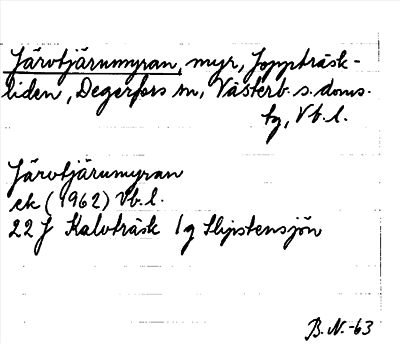 Järvtjärnmyran, myr, Joppträsk-
liden, Degerfors sn, Västerb. s. doms.
tg, Vb. l.
Järvtjärnmyran
ek (1962) Vb. l.
22 J Kalvträsk 1 g Slipstensjön
B. N. -63